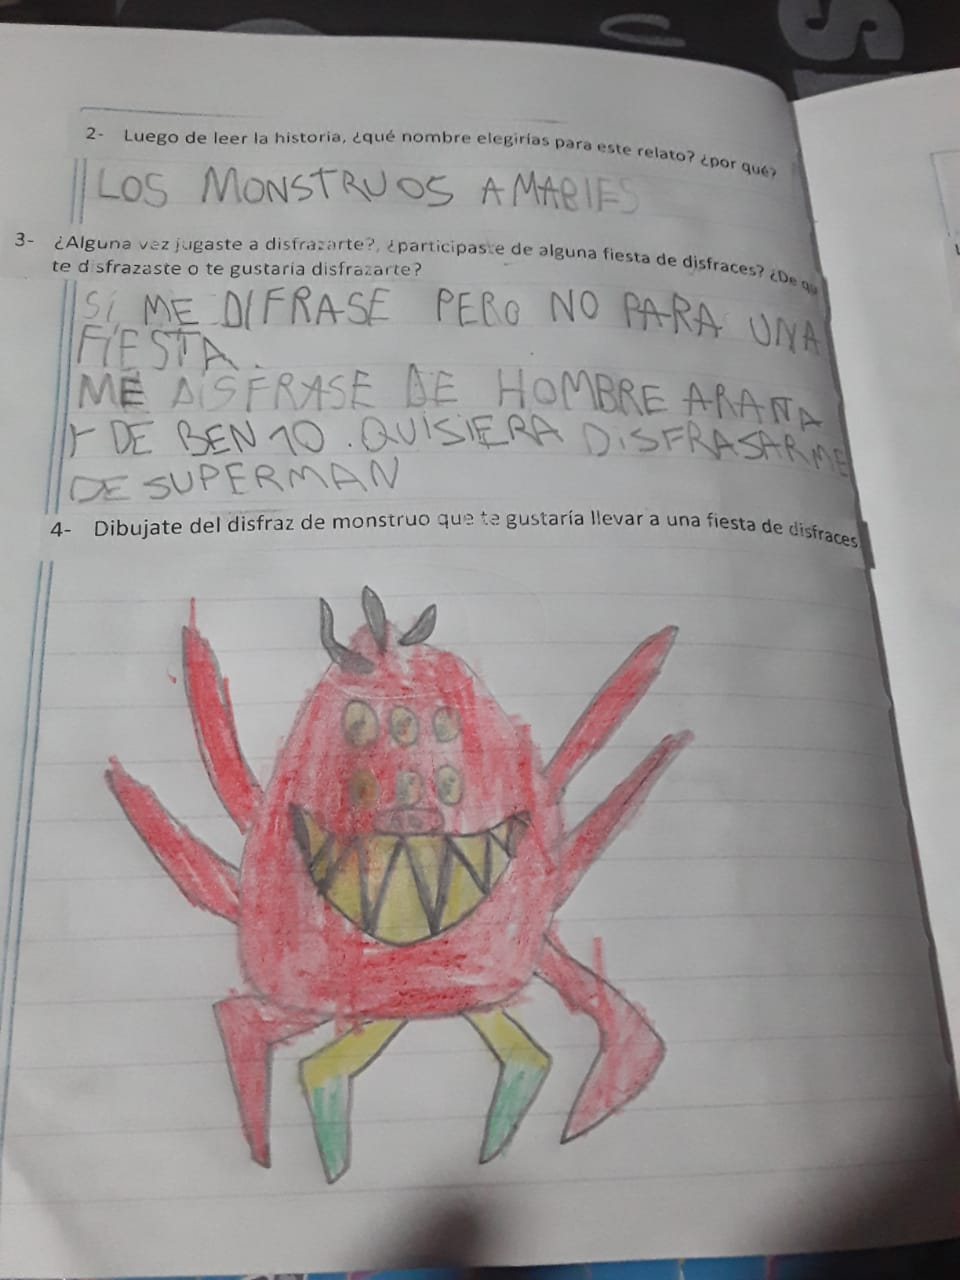 2- Luego de leer la historia, ¿qué nombre elegirías para este relato? ¿por qué?
LOS MONSTRUOS AMABLES
3- ¿Alguna vez jugaste a disfrazarte?, ¿participaste de alguna fiesta de disfraces? ¿De qu
te disfrazaste o te gustaría disfrazarte?
SÍ ME DIFRASE PERO NO PARA UNA
FIESTA.
ME DISFRASE DE HOMBRE ARAÑA
Y DE BEN 10. QUISIERA DISFRASARME
DE SUPERMAN
4- Dibujate del disfraz de monstruo que te gustaría llevar a una fiesta de disfraces